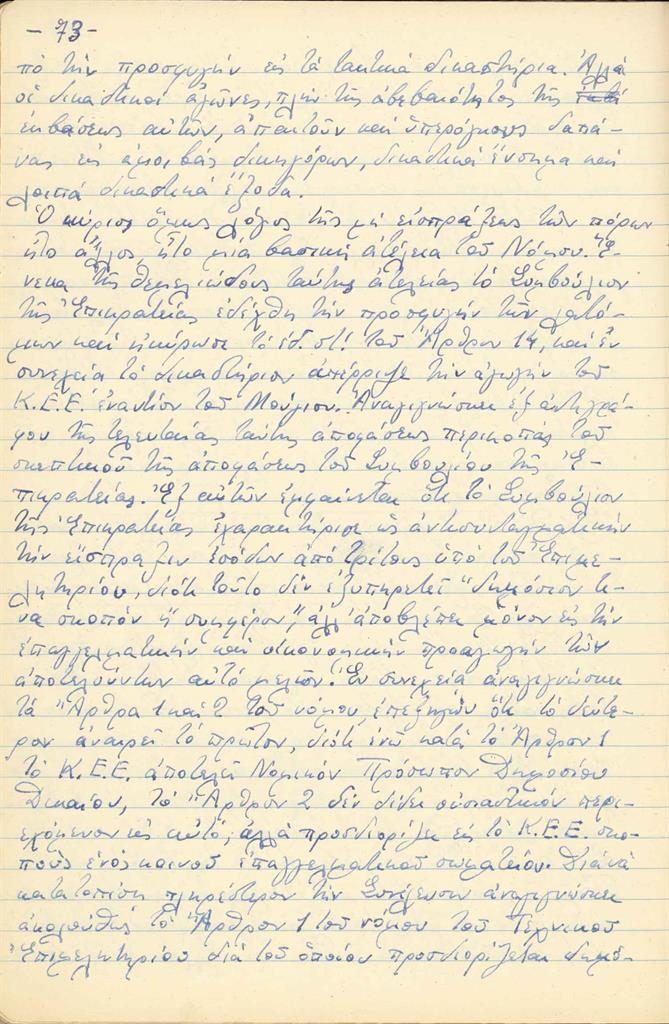 - 73 -
πό τήν προσφυγήν εἰς τά τακτικά δικαστήρια. Ἀλλά
οἱ δικαστικοί ἀγῶνες, πλήν τῆς ἀβεβαιότητος τῆς
ἐκβάσεως αὐτῶν, ἀπαιτοῦν καί ὑπερόγκους δαπά-
νας εἰς ἀμοιβάς δικηγόρων, δικαστικά ἔνσημα καί
λοιπά δικαστικά ἔξοδα.
Ὁ κύριος ὅμως λόγος τῆς μή εἰσπράξεως τῶν πόρων
ἦτο ἄλλος, ἦτο μία βασική ἀτέλεια τοῦ Νόμου. Ἕ-
νεκα τῆς θεμελιώδους ταύτης ἀτελείας τό Συμβούλιον
τῆς Ἐπικρατείας ἐδέχθη τήν προσφυγήν τῶν λατό-
μων καί ἠκύρωσε τό ἐδ. στ! τοῦ Ἄρθρου 14, καί ἐν
συνεχείᾳ τό δικαστήριον ἀπέρριψε τήν ἀγωγήν τοῦ
Κ.Ε.Ε. ἐναντίον τοῦ Μούγιου. Ἀναγιγνώσκει ἐξ ἀντιγρά-
φου τῆς τελευταίας ταύτης ἀποφάσεως περικοπάς τοῦ
σκεπτικοῦ τῆς ἀποφάσεως τοῦ Συμβουλίου τῆς Ἐ-
πικρατείας. Ἐξ αὐτῶν ἐμφαίνεται ὅτι τό Συμβούλιον
τῆς Ἐπικρατείας ἐχαρακτήρισε ὡς ἀντισυνταγματικήν
τήν εἴσπραξιν ἐσόδων ἀπό τρίτους ὑπό τοῦ Ἐπιμε-
λητηρίου, διότι τοῦτο δέν ἐξυπηρετεῖ "δημόσιον τι-
να σκοπόν ἤ συμφέρον", ἀλλ' ἀποβλέπει μόνον εἰς τήν
ἐπαγγελματικήν καί οἰκονομικήν προαγωγήν τῶν
ἀποτελούντων αὐτό μελῶν. Ἐν συνεχείᾳ ἀναγιγνώσκει
τά Ἄρθρα 1 καί 2 τοῦ νόμου, ἐπεξηγῶν ὅτι τό δεύτε-
ρον ἀναιρεῖ τό πρῶτον, διότι ἐνῶ κατά τό Ἄρθρον 1
τό Κ.Ε.Ε. ἀποτελεῖ Νομικόν Πρόσωπον Δημοσίου
Δικαίου, τό Ἄρθρον 2 δέν δίδει οὐσιαστικόν περι-
εχόμενον εἰς αὐτό, ἀλλά προσδιορίζει εἰς τό Κ.Ε.Ε. σκο-
πούς ἑνός κοινοῦ ἐπαγγελματικοῦ σωματείου. Διά νά
κατατοπίσῃ πληρέστερον τήν Συνέλευσιν ἀναγιγνώσκει
ἀκολούθως τό Ἄρθρον 1 τοῦ νόμου τοῦ Τεχνικοῦ
Ἐπιμελητηρίου διά τοῦ ὁποίου προσδιορίζεται δημό-